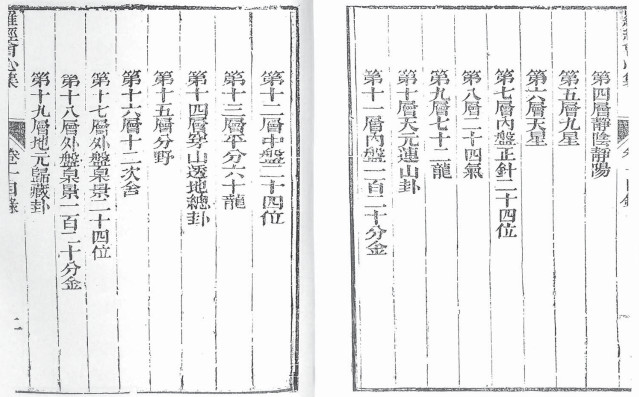 第四層靜陰靜陽
第五層九星
第六層天星
第七層內盤正針二十四位
第八層二十四氣
第九層七十二龍
第十層天元連山卦
第十一層內盤一百二十分金
第十二層中盤二十四位
第十三層平分六十龍
第十四層穿山透地總卦
第十五層分野
第十六層十二次舍
第十七層外盤臬景二十四位
第十八層外盤臬景一百二十分金
第十九層地元歸藏卦
羅經會心集
卷一目錄
二